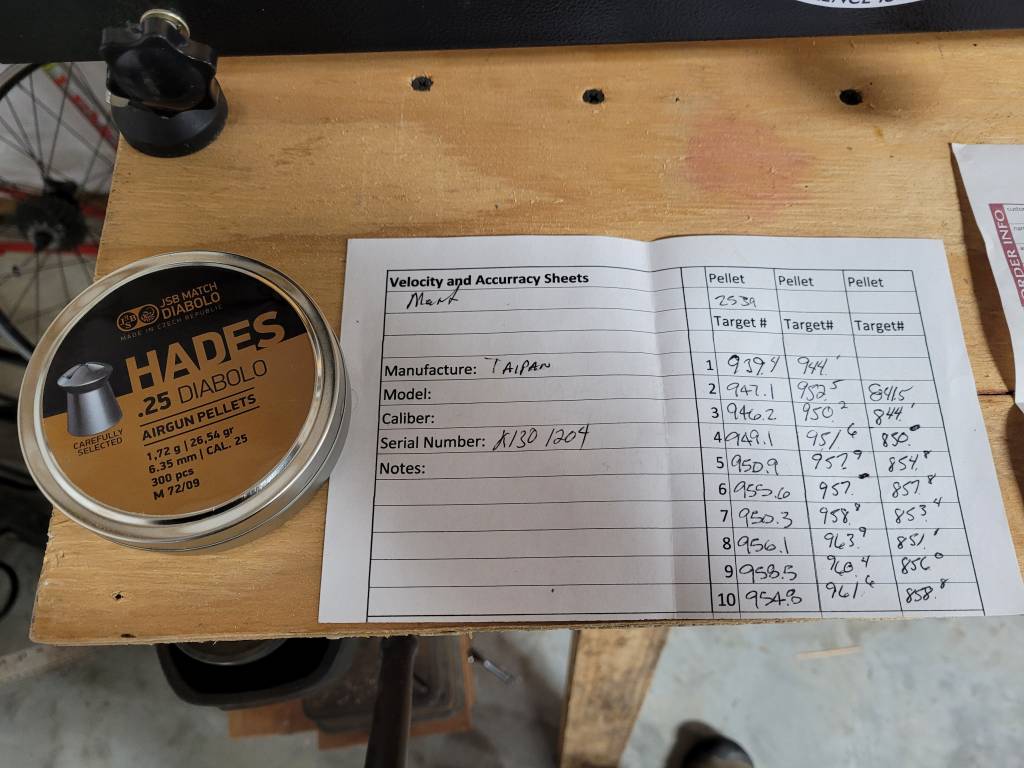 JSB MATCH
DIABOLO
MADE IN CZECH REPUBLIC
HADES
.25 DIABOLO
AIRGUN PELLETS
CAREFULLY
SELECTED
1,72 g | 26,54 gr
6.35 mm | CAL. 25
300 pcs
M 72/09
Velocity and Accurracy Sheets Pellet Pellet Pellet
2539
Target # Target# Target#
Manufacture: TAIPAN 1 939.4 944.1
Model: 2 947.1 952.5 841.5
Caliber: 3 946.2 950.2 844.1
Serial Number: X130 1204 4 949.1 951.6 850.
Notes: 5 950.9 957.9 854.8
6 955.6 957. 857.8
7 950.3 958.8 853.4
8 956.1 963.9 851.1
9 958.5 960.4 856.0
10 954.8 961.6 858.8
ORDER INFO